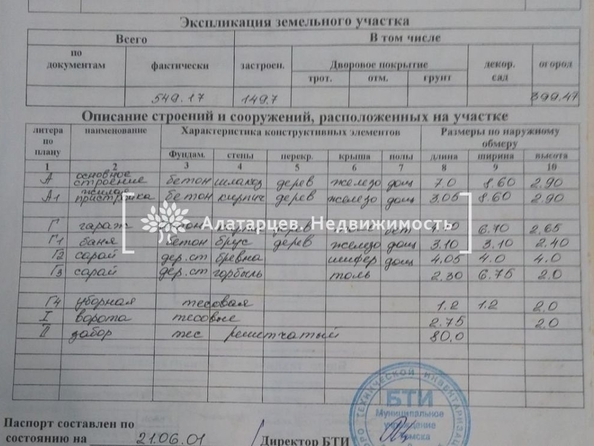 Экспликация земельного участка
Всего В том числе
по документам фактически застроен. Дворовое покрытие декор. сад огород
трот. отм. грунт
549.17 149,7 399.47
Описание строений и сооружений, расположенных на участке
литера по плану наименование Характеристика конструктивных элементов Размеры по наружному обмеру
Фундам. стены перекр. крыша полы длина ширина высота
1 2 3 4 5 6 7 8 9 10
А основное строение бетон шлакоз дерев железо дощ 7.0 8.60 2.90
А1 жилая пристройка бетон кирпич дерев железо дощ 3.05 8.60 2.90
Г гараж 6.70 2.65
Г1 баня бетон брус дерев железо дощ 3.10 3.10 2.40
Г2 сарай дер.ст бревна шифер дощ 4.05 4.0 2.0
Г3 сарай дер.ст горбыль толь 2.30 6.75 2.0
Г4 уборная тесовая 1.2 1.2 2.0
I ворота тесовые 2.75 2.0
II забор тес решетчатый 80,0
[ Алатарцев. Недвижимость ]
Паспорт составлен по
состоянию на 21.06.01 Директор БТИ
БТИ
Муниципальное
учреждение